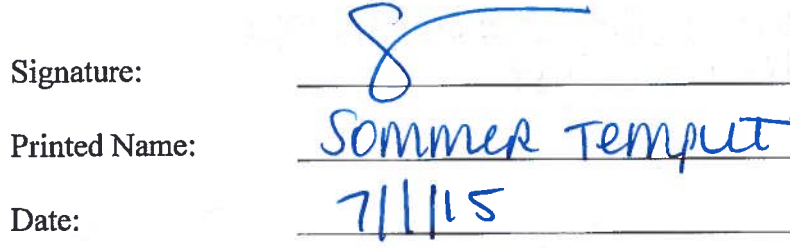 Signature:
Printed Name: Sommer Temput
Date: 7/1/15